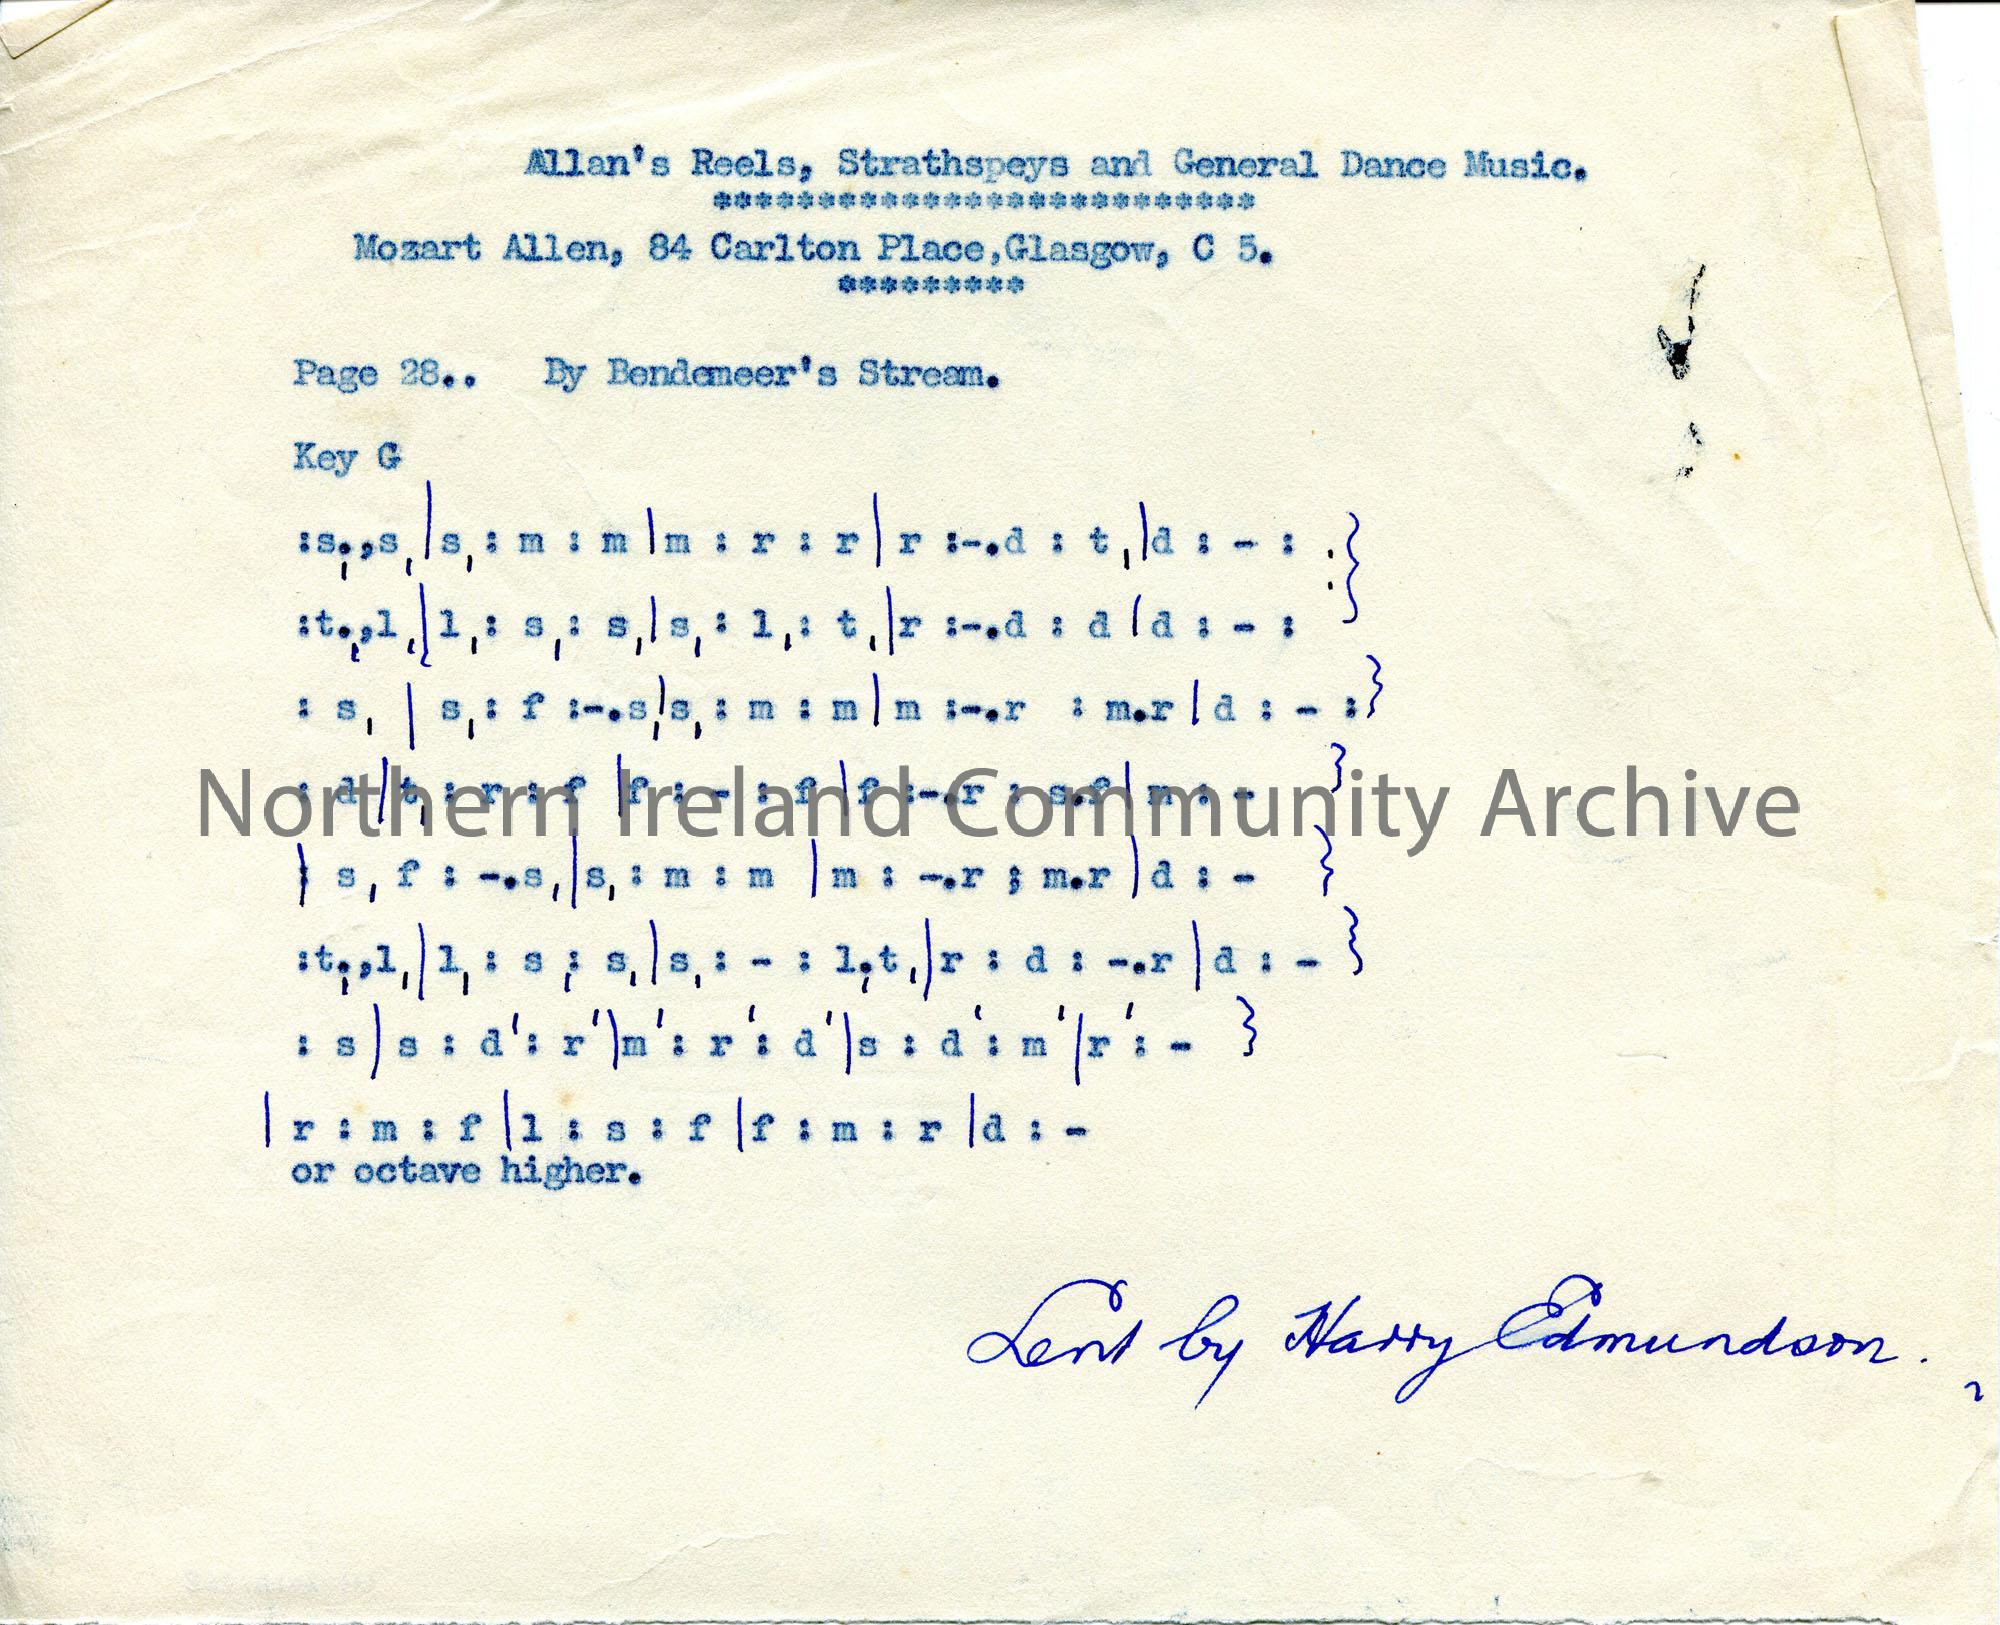 Allan's Reels, Strathspeys and General Dance Music.
**************************
Mozart Allen, 84 Carlton Place,Glasgow, C 5.
*********
Page 28.. By Bendemeer's Stream.
Key G
:s,.,s,|s,: m : m|m : r : r|r :-.d : t,|d : - : :}
:t,.,l,|l,: s,: s,|s,: l,: t,|r :-.d : d|d : - :
: s, | s,: f :-.s,|s,: m : m|m :-.r : m.r|d : - :}
: d|t,: r : f |f : - : f|f :-.r : s.f|m : - }
| s, f : -.s,|s,: m : m |m : -.r ; m.r|d : - }
:t,.,l,|l,: s ; s,|s,: - : l,.t,|r : d : -.r|d : - }
: s|s : d': r'|m': r': d'|s : d': m'|r': - }
|r : m : f|l : s : f|f : m : r|d : -
or octave higher.
Lent by Harry Edmundson.
Northern Ireland Community Archive